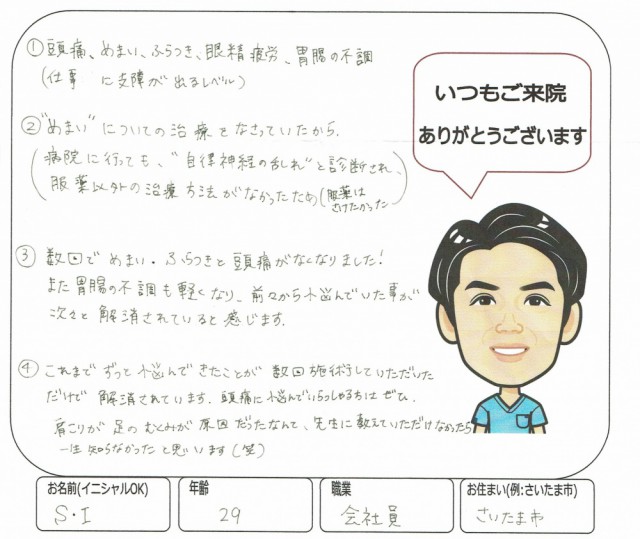 ① 頭痛、めまい、ふらつき、眼精疲労、胃腸の不調
(仕事 に支障が出るレベル)
② "めまい"についての治療をなさっていたから.
(病院に行っても、"自律神経の乱れ"と診断され、
服薬以外の治療方法がなかったため(服薬は
さけたかった)
③ 数回でめまい・ふらつきと頭痛がなくなりました!
また胃腸の不調も軽くなり、前々から悩んでいた事が
次々と解消されていると感じます.
④ これまでずっと悩んできたことが数回施術していただいた
だけで解消されています. 頭痛に悩んでいらっしゃる方はぜひ.
肩こりが足のむくみが原因だったなんて、先生に教えていただけなかったら
一生知らなかったと思います(笑)
いつもご来院
ありがとうございます
お名前(イニシャルOK) 年齢 職業 お住まい(例:さいたま市)
S・I 29 会社員 さいたま市